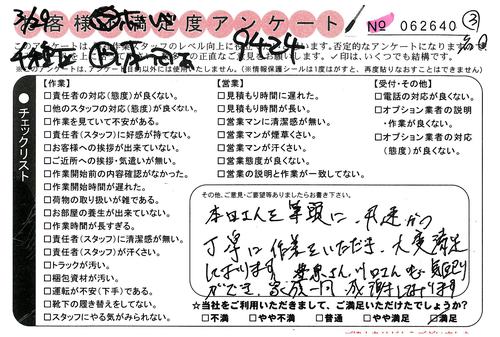 3/29
お客様満足度アンケート
No 062640 ③
9424
このアンケートは
※このアンケートは、アンケート目的以外には使用いたしません。(※情報保護シールは1度はがすと、再度貼りなおすことはできません)
●チェックリスト
【作業】
□責任者の対応(態度)が良くない。
□他のスタッフの対応(態度)が良くない。
□作業を見ていて不安がある。
□責任者(スタッフ)に好感が持てない。
□お客様への挨拶が出来ていない。
□ご近所への挨拶・気遣いが無い。
□作業開始前の内容確認がなかった。
□作業開始時間が遅れた。
□荷物の取り扱いが雑である。
□お部屋の養生が出来ていない。
□作業時間が長すぎる。
□責任者(スタッフ)に清潔感が無い。
□責任者(スタッフ)が汗くさい。
□トラックが汚い。
□梱包資材が汚い。
□運転が不安(下手)である。
□靴下の履き替えをしてない。
□スタッフにやる気がみられない。
【営業】
□見積もり時間に遅れた。
□見積もり時間が長い。
□営業マンに清潔感が無い。
□営業マンが煙草くさい。
□営業マンが汗くさい。
□営業態度が良くない。
□営業の説明と作業が一致してない。
【受付・その他】
□電話の対応が良くない。
□オプション業者の説明
・作業が良くない。
□オプション業者の対応
(態度)が良くない。
その他、ご意見・ご要望等ありましたらお書き下さい。
本田さんを筆頭に、迅速かつ
丁寧に作業をいただき、大変満足
しております。
ができ、家族一同感謝しております
☆当社をご利用いただきまして、ご満足いただけたでしょうか?
□不満 □やや不満 □普通 □やや満足 □満足